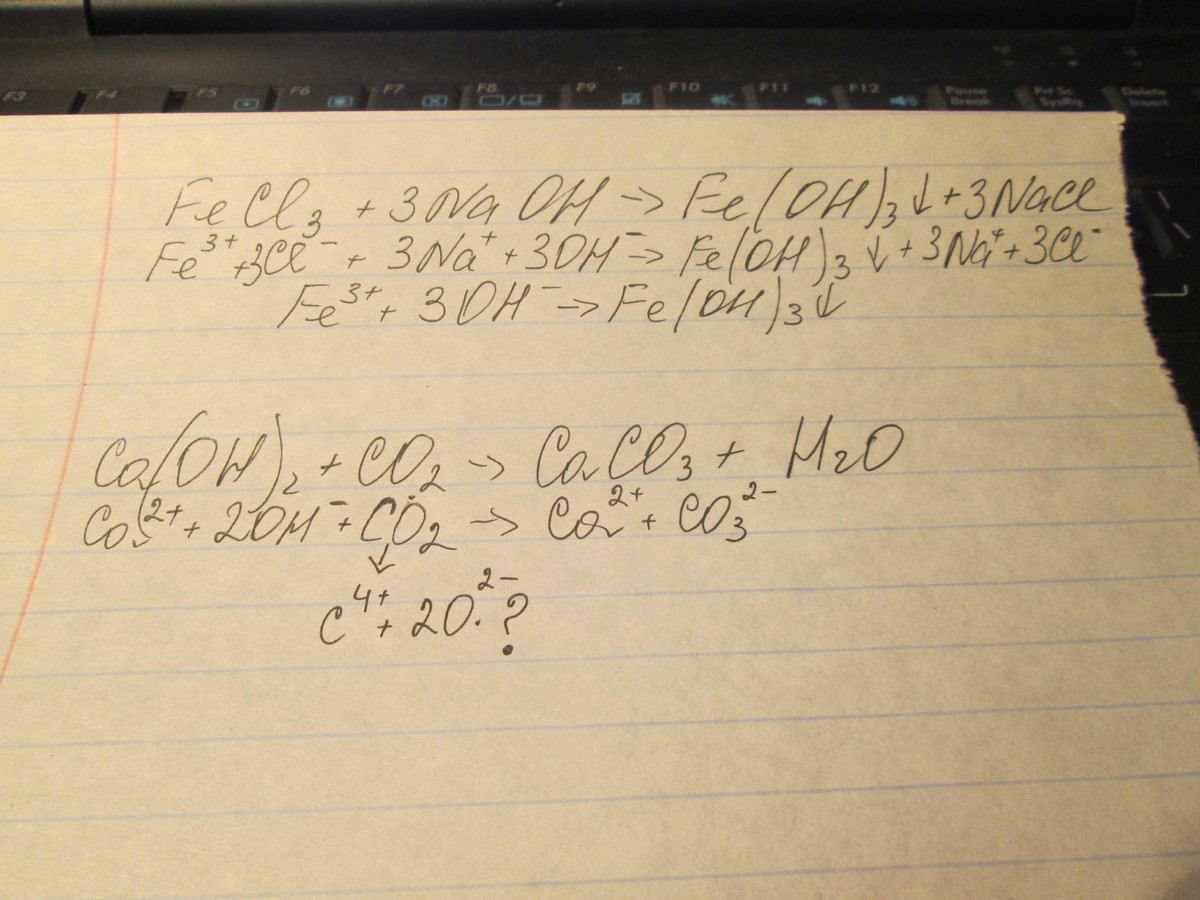 F3 F4 F5 F6 F7 F8 F9 F10 F11 F12 Pause Break Prt Sc SysRq Delete Insert
FeCl₃ + 3NaOH → Fe(OH)₃↓ + 3NaCl
Fe³⁺ + 3Cl⁻ + 3Na⁺ + 3OH⁻ → Fe(OH)₃↓ + 3Na⁺ + 3Cl⁻
Fe³⁺ + 3OH⁻ → Fe(OH)₃↓
Ca(OH)₂ + CO₂ → CaCO₃ + H₂O
Ca²⁺ + 2OH⁻ + CO₂ → Ca²⁺ + CO₃²⁻
↓
C⁴⁺ + 2O²⁻ ?